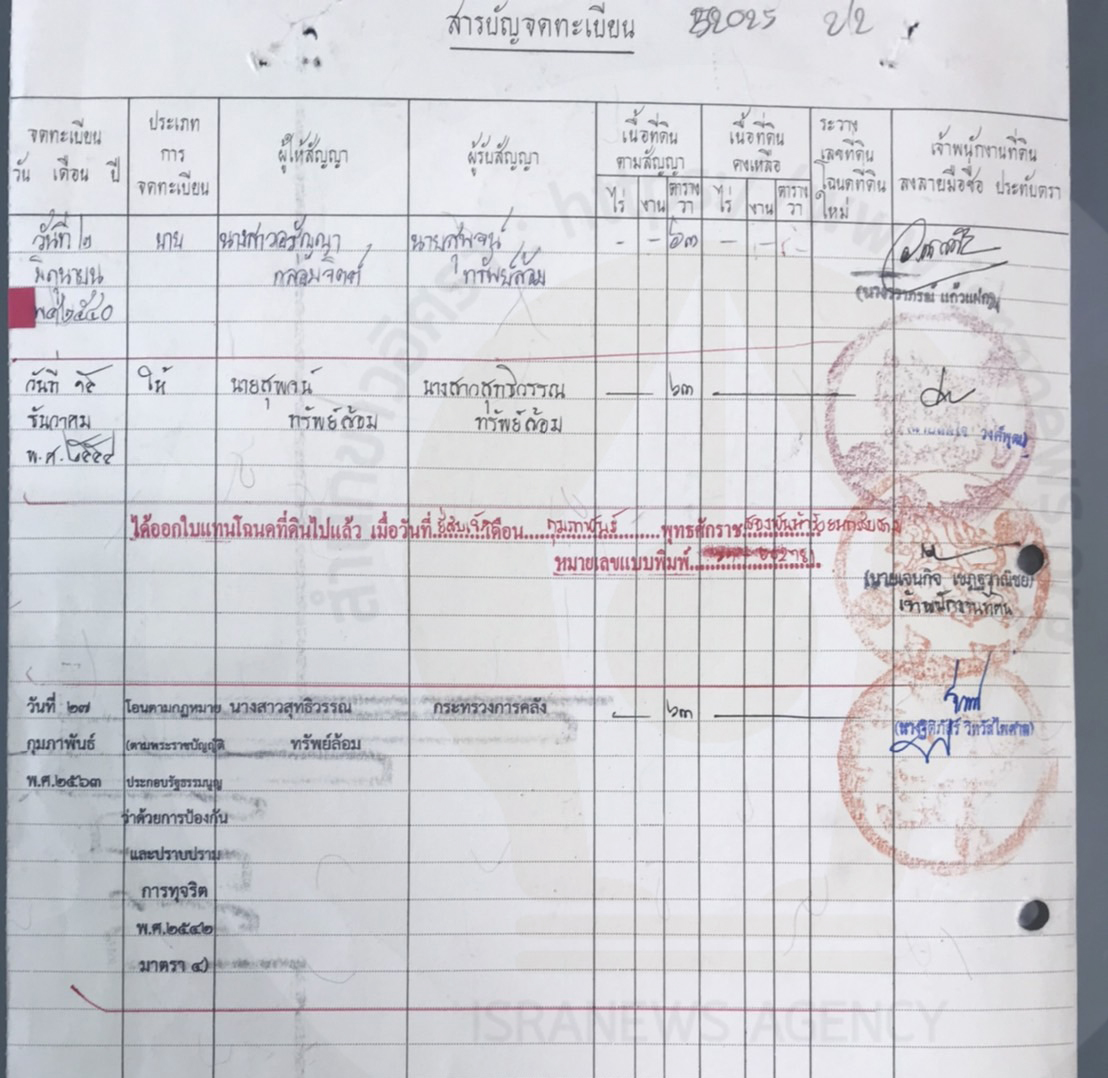 สารบัญจดทะเบียน
จดทะเบียน
วัน เดือน ปี
ประเภท
การ
จดทะเบียน
ผู้ให้สัญญา
ผู้รับสัญญา
เนื้อที่ดิน
ตามสัญญา
ไร่ งาน ตาราง
วา
เนื้อที่ดิน
คงเหลือ
ไร่ งาน ตาราง
วา
ระวาง
เลขที่ดิน
โฉนดที่ดิน
ใหม่
เจ้าพนักงานที่ดิน
ลงลายมือชื่อ ประทับตรา
วันที่ ๒ ขาย นางสาวอรัญญา นายสุพจน์ - - ๖๓ - - -
มิถุนายน กล่อมจิตต์ ทรัพย์ล้อม
พ.ศ.๒๕๔๐
วันที่ ๑๕ ให้ นายสุพจน์ นางสาวสุทธิวรรณ — ๖๓ —
ธันวาคม ทรัพย์ล้อม ทรัพย์ล้อม
พ.ศ.
วงศ์พุฒ)
ได้ออกใบแทนโฉนดที่ดินไปแล้ว เมื่อวันที่ เดือน กุมภาพันธ์ พุทธศักราช
หมายเลขแบบพิมพ์
(นายเจนกิจ เชฏฐวาณิชย์)
เจ้าพนักงานที่ดิน
วันที่ ๒๗ โอนตามกฎหมาย นางสาวสุทธิวรรณ กระทรวงการคลัง — ๖๓ —
กุมภาพันธ์ (ตามพระราชบัญญัติ ทรัพย์ล้อม
พ.ศ.๒๕๖๓ ประกอบรัฐธรรมนูญ
ว่าด้วยการป้องกัน
และปราบปราม
การทุจริต
พ.ศ.๒๕๔๒
มาตรา ๔)
ISRANEWS AGENCY